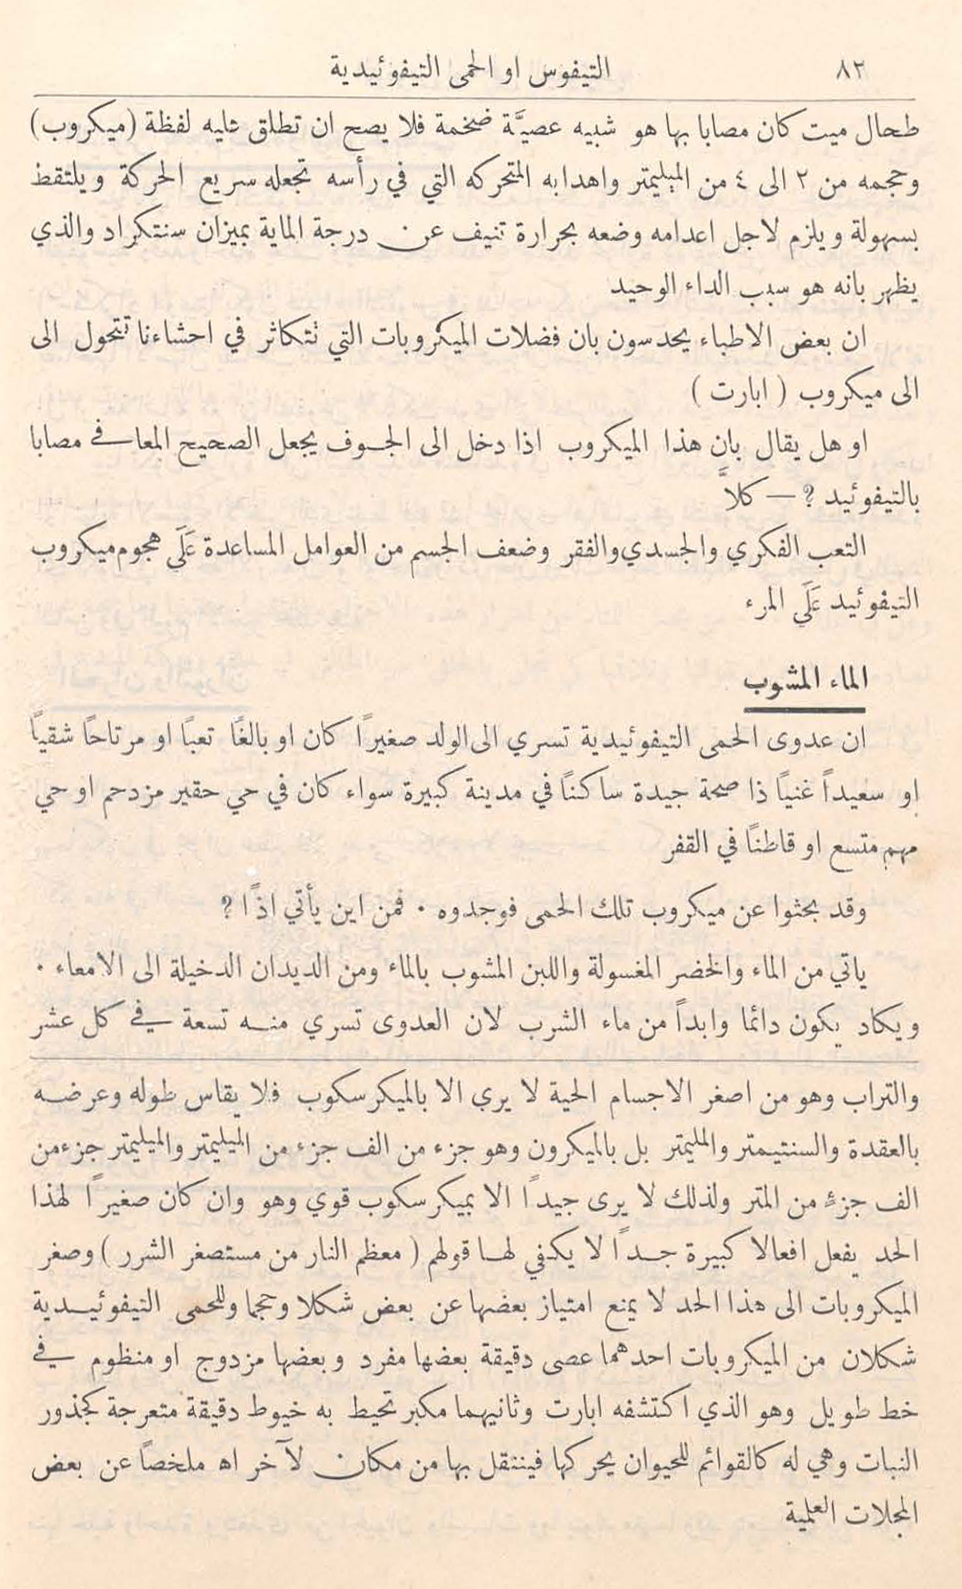 ٨٢
التيفوس او الحمى التيفوئيدية
طحال ميت كان مصابا بها هو شبيه عصيَّة ضخمة فلا يصح ان تطلق عليه لفظة (ميكروب)
وحجمه من ٢ الى ٤ من الميليمتر واهدابه المتحركه التي في رأسه تجعله سريع الحركة ويلتقط
بسهولة ويلزم لاجل اعدامه وضعه بحرارة تنيف عن درجة الماية بميزان سنتكراد والذي
يظهر بانه هو سبب الداء الوحيد
ان بعض الاطباء يحدسون بان فضلات الميكروبات التي نتكاثر في احشاءنا تتحول الى
الى ميكروب ( ابارت )
او هل يقال بان هذا الميكروب اذا دخل الى الجوف يجعل الصحيح المعافى مصابا
بالتيفوئيد ? — كلاَّ
التعب الفكري والجسدي والفقر وضعف الجسم من العوامل المساعدة عَلَى هجوم ميكروب
التيفوئيد عَلَى المرء
الماء المشوب
ان عدوى الحمى التيفوئيدية تسري الى الولد صغيرًا كان او بالغًا تعبًا او مرتاحًا شقيًا
او سعيداً غنياً ذا صحة جيدة ساكنًا في مدينة كبيرة سواء كان في حي حقير مزدحم او حي
مهم متسع او قاطنًا في القفر
وقد بحثوا عن ميكروب تلك الحمى فوجدوه . فمن اين يأتي اذًا ?
ياتي من الماء والخضر المغسولة واللبن المشوب بالماء ومن الديدان الدخيلة الى الامعاء .
ويكاد يكون دائما وابداً من ماء الشرب لان العدوى تسري منه تسعة في كل عشر
والتراب وهو من اصغر الاجسام الحية لا يرى الا بالميكرسكوب فلا يقاس طوله وعرضه
بالعقدة والسنتيمتر والمليمتر بل بالميكرون وهو جزء من الف جزء من الميليمتر والميليمتر جزء من
الف جزءٍ من المتر ولذلك لا يرى جيدًا الا بميكرسكوب قوي وهو وان كان صغيرًا لهذا
الحد يفعل افعالا كبيرة جدًا لا يكفي لها قولهم ( معظم النار من مستصغر الشرر ) وصغر
الميكروبات الى هذا الحد لا يمنع امتياز بعضها عن بعض شكلا وحجما وللحمى التيفوئيدية
شكلان من الميكروبات احدهما عصى دقيقة بعضها مفرد وبعضها مزدوج او منظوم في
خط طويل وهو الذي اكتشفه ابارت وثانيهما مكبر تحيط به خيوط دقيقة متعرجة كجذور
النبات وهي له كالقوائم للحيوان يحركها فيننقل بها من مكان لآخر اه ملخصاً عن بعض
المجلات العلمية